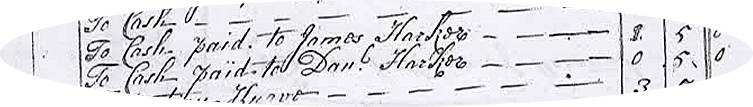 To Cash — — — — — —
To Cash paid to James Harker — — — — 8 5
To Cash paid to Danl Harker — — — — 0 5 0
Knave — — — — — 3